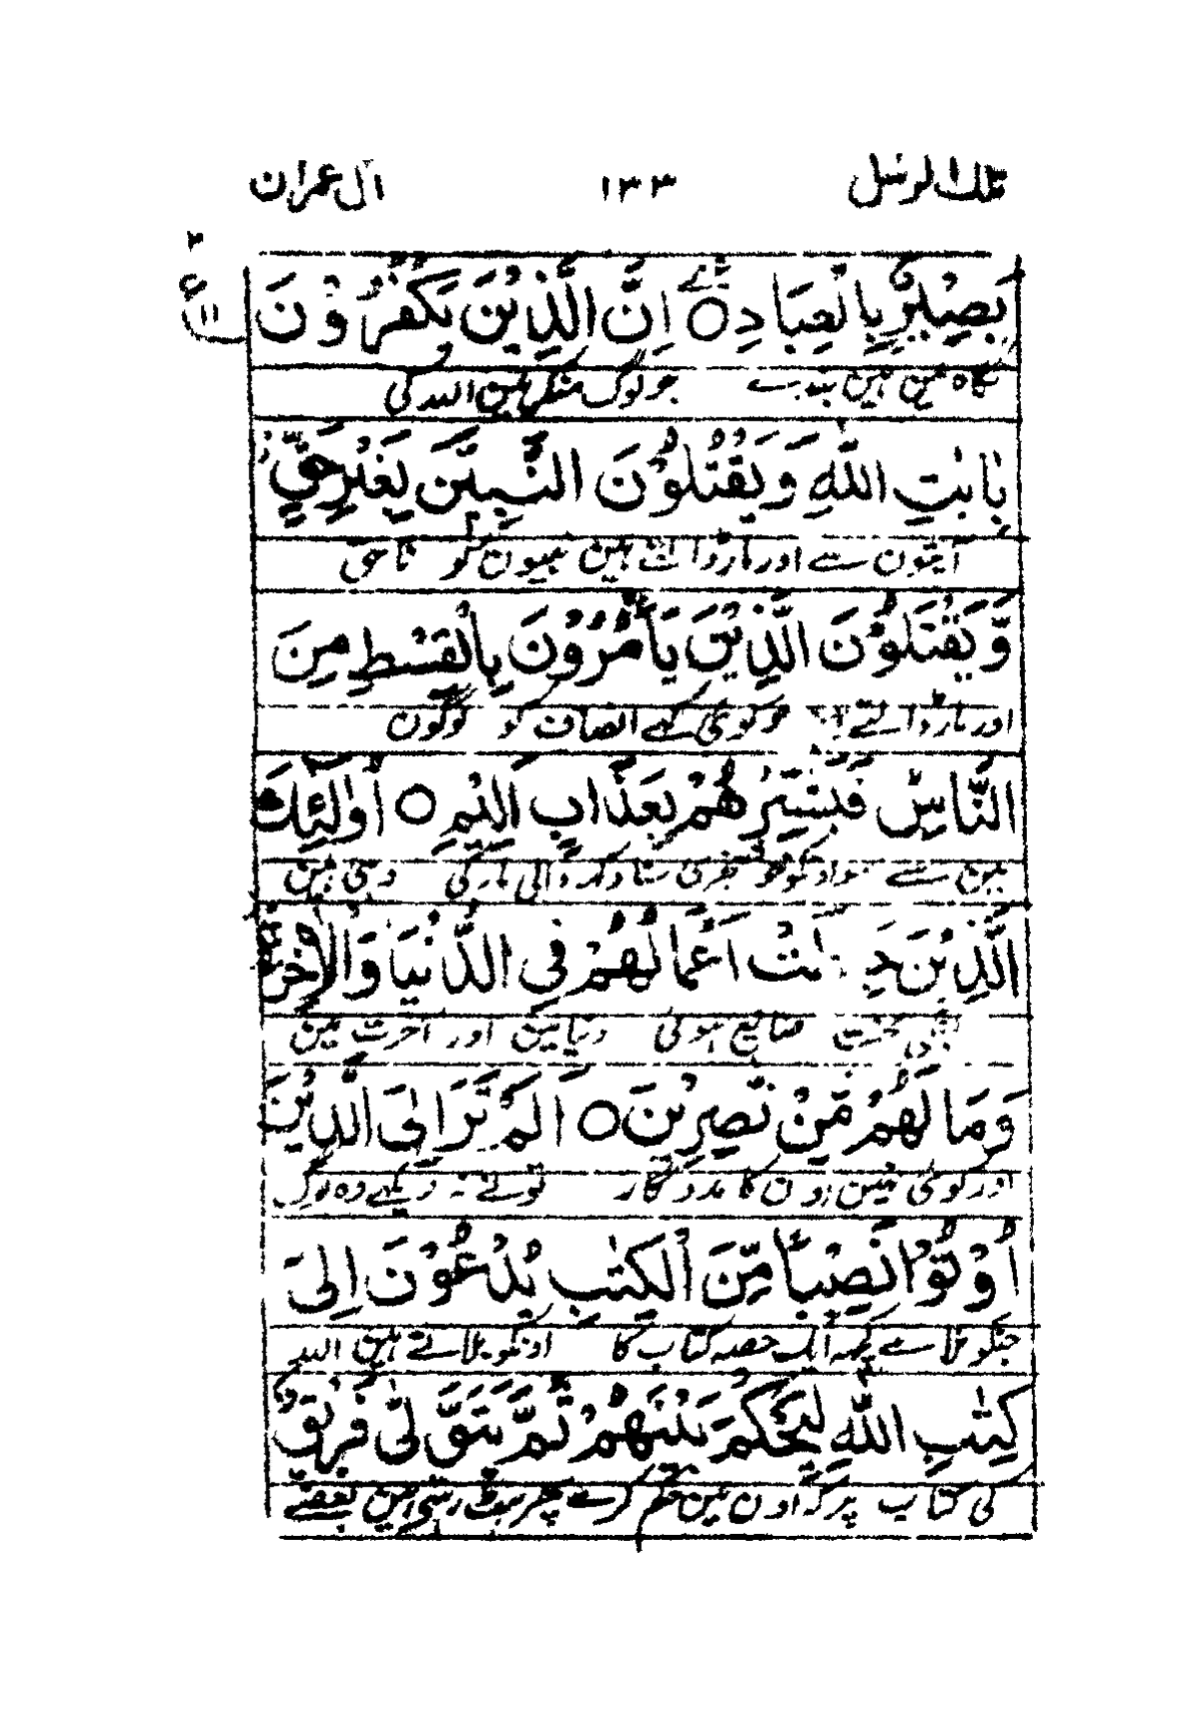 تلك الرسل ١٣٣ آل عمران
٢
ع
١١
بَصِيْرٌۢ بِالْعِبَادِ ○ اِنَّ الَّذِيْنَ يَكْفُرُوْنَ
نگاہ مین ہین بندے جو لوگ منکر ہین اللہ کی
بِاٰيٰتِ اللّٰهِ وَيَقْتُلُوْنَ النَّبِيّٖنَ بِغَيْرِ حَقٍّ
آیتون سے اور مار ڈالتے ہین نبیون کو ناحق
وَّيَقْتُلُوْنَ الَّذِيْنَ يَأْمُرُوْنَ بِالْقِسْطِ مِنَ
اور مار ڈالتے جو کوئی کہے انصاف کو لوگون
النَّاسِ فَبَشِّرْهُمْ بِعَذَابٍ اَلِيْمٍ ○ اُولٰٓئِكَ
مین سے خوشخبری سنا دکھ والی مار کی وہی ہین
الَّذِيْنَ حَبِطَتْ اَعْمَالُهُمْ فِي الدُّنْيَا وَالْاٰخِرَةِ
محنت ضائع ہوئی دنیا مین اور آخرت مین
وَمَا لَهُمْ مِّنْ نّٰصِرِيْنَ ○ اَلَمْ تَرَ اِلَى الَّذِيْنَ
اور کوئی نہین اون کا مددگار تونے نہ دیکھے وہ لوگ
اُوْتُوْا نَصِيْبًا مِّنَ الْكِتٰبِ يُدْعَوْنَ اِلٰى
جنکو ملا ہے کچھ ایک حصہ کتاب کا اونکو بلاتے ہین اللہ
كِتٰبِ اللّٰهِ لِيَحْكُمَ بَيْنَهُمْ ثُمَّ يَتَوَلّٰى فَرِيْقٌ
کی کتاب پر کہ اون مین حکم کرے پھر ہٹ رہتے ہین بعضے